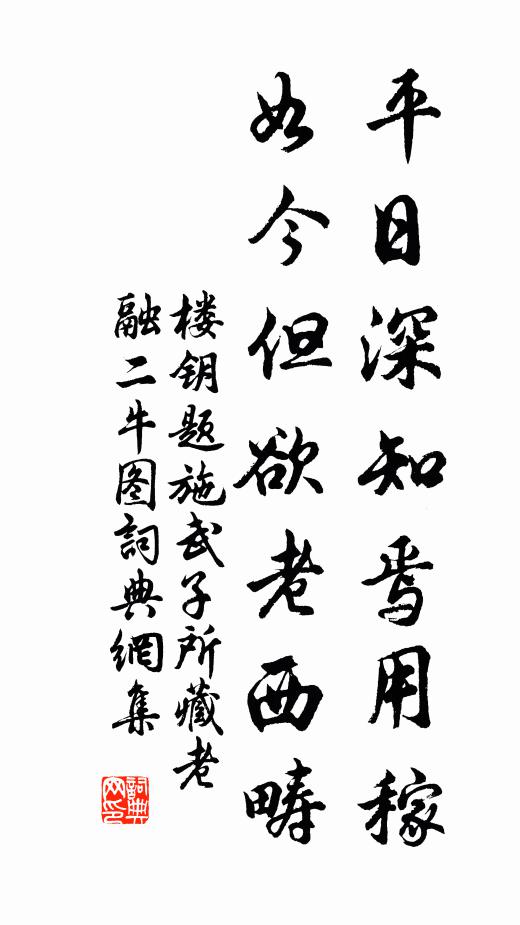 平日深知焉用稼
如今但欲老西畴
楼钥题施武子所藏老
融二牛图詞典網集
詞典
网印